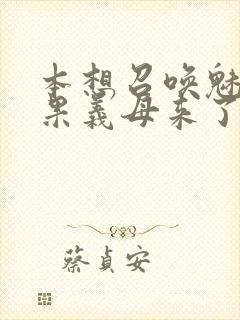 本想召唤魅
果义母来了
蔡貞安